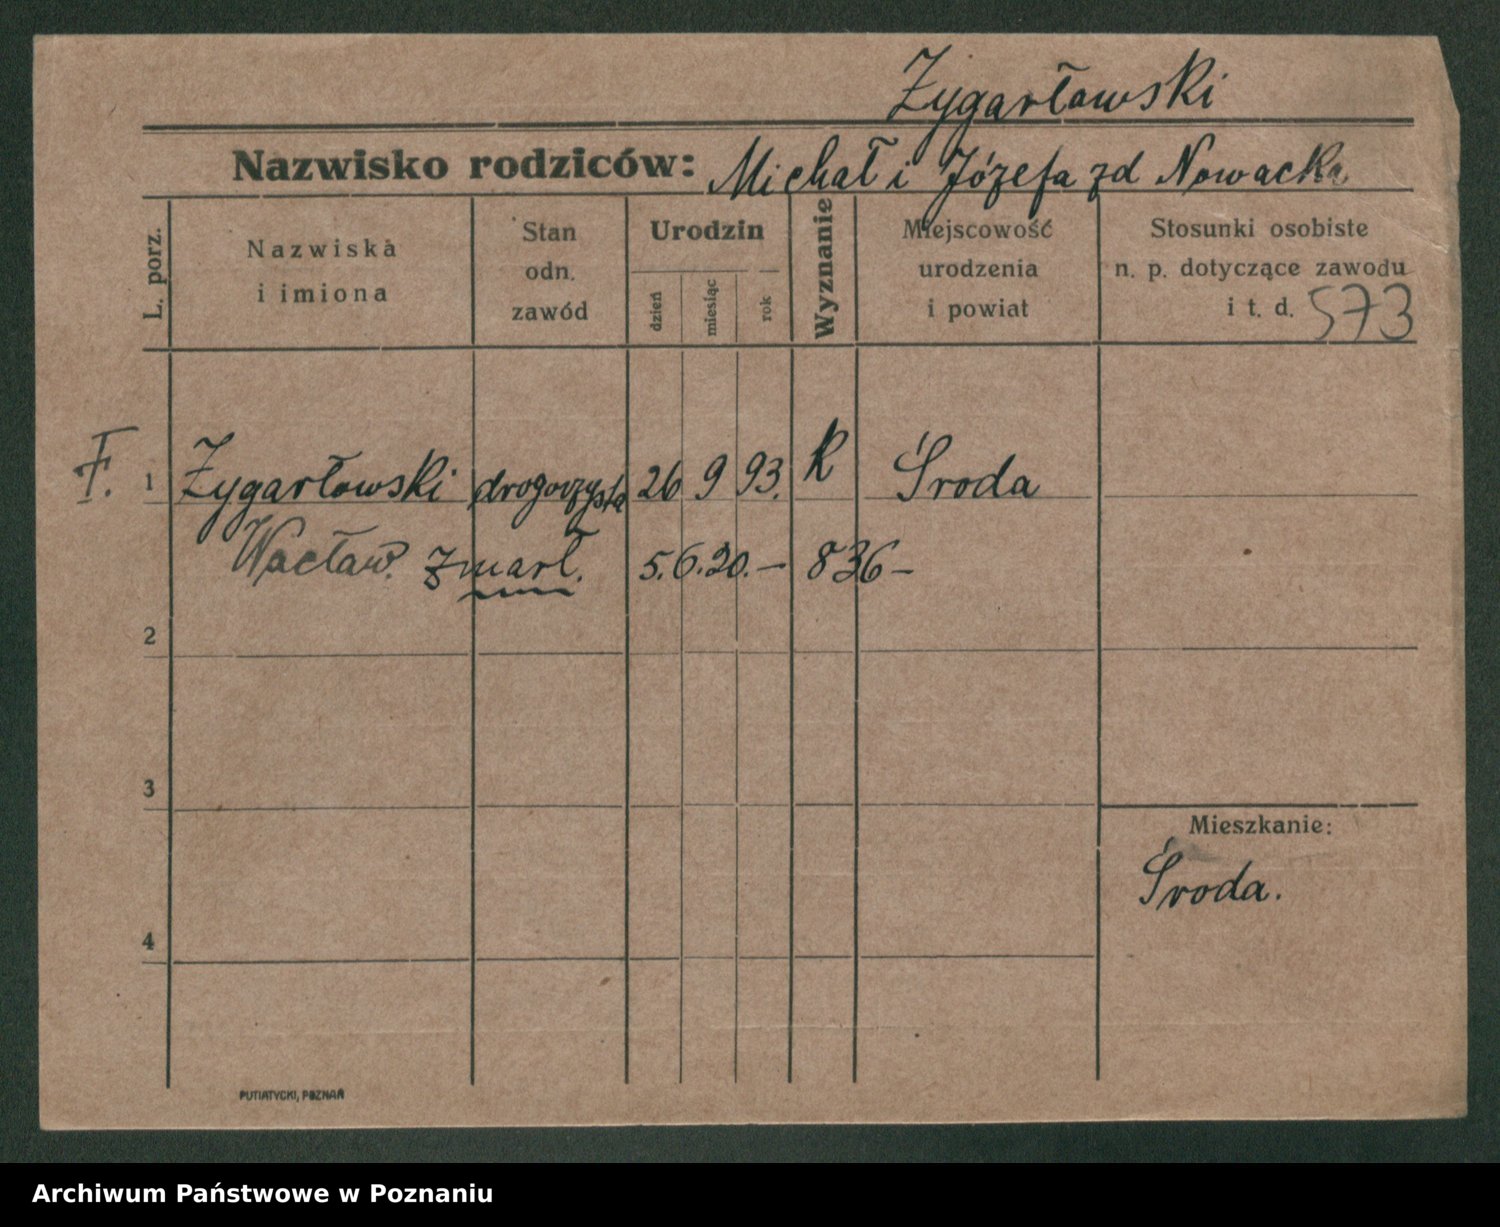 Zygarłowski
Nazwisko rodziców: Michał i Józefa zd Nowacka
L. porz.
Nazwiska
i imiona
Stan
odn.
zawód
Urodzin
dzień
miesiąc
rok
Wyznanie
Miejscowość
urodzenia
i powiat
Stosunki osobiste
n. p. dotyczące zawodu
i t. d. 573
F. 1 Zygarłowski drogorzysta 26 9 93. K Środa
Wacław. zmarł. 5.6.20.– 836–
2
3
Mieszkanie:
Środa.
4
PUTIATYCKI, POZNAŃ
Archiwum Państwowe w Poznaniu